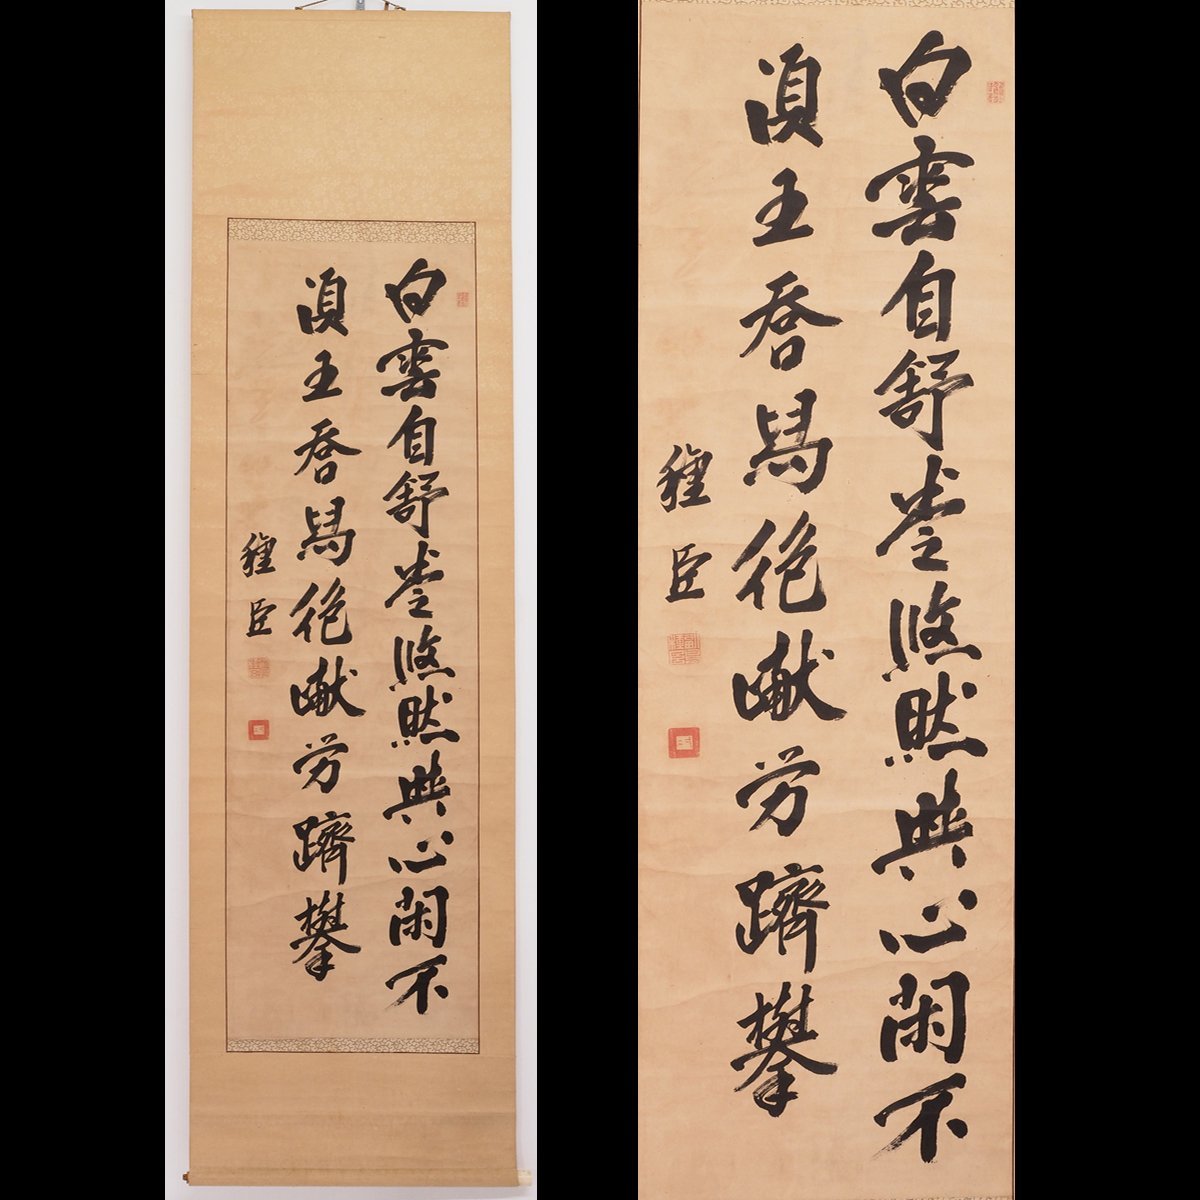 白雲自舒卷悠然與心閑不
須王喬舄絶巘労躋攀
種臣